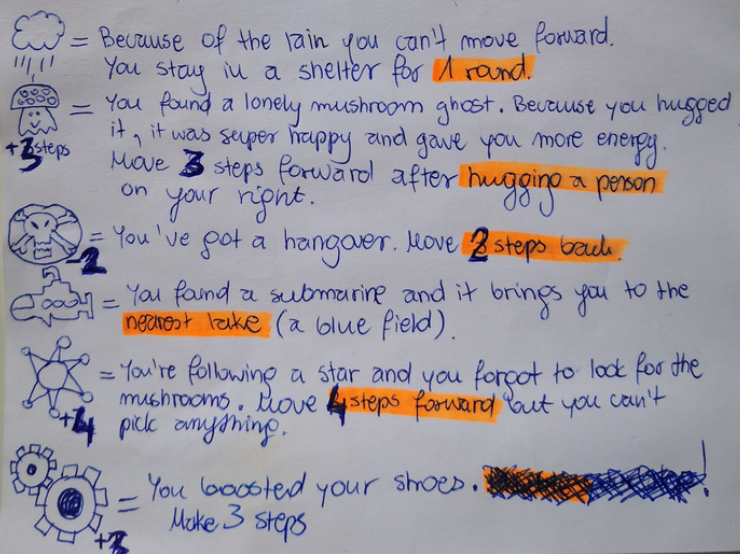 = Because of the rain you can't move forward.
You stay in a shelter for 1 round.
= You found a lonely mushroom ghost. Because you hugged
it, it was super happy and gave you more energy.
+3 steps
Move 3 steps forward after hugging a person
on your right.
= You've got a hangover. Move 2 steps back.
-2
= You found a submarine and it brings you to the
nearest lake (a blue field).
= You're following a star and you forgot to look for the
mushrooms. Move 4 steps forward but you can't
+4
pick anything.
= You boosted your shoes. !
Make 3 steps
+3